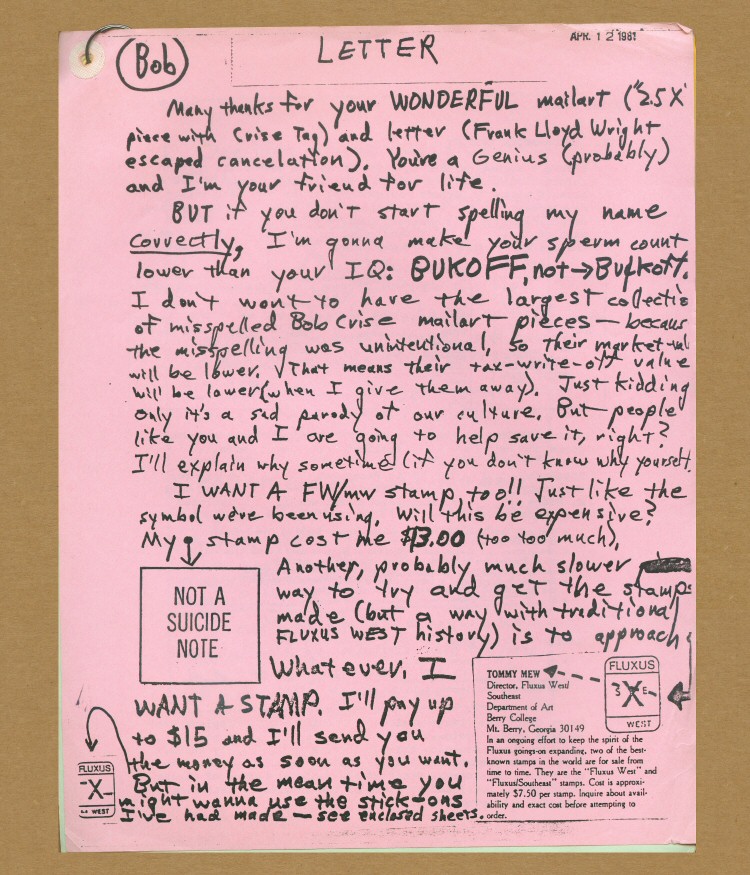 (Bob)
LETTER
APR. 12 1981
Many thanks for your WONDERFUL mailart ("2.5 X"
piece with Crise Tag) and letter (Frank Lloyd Wright
escaped cancelation). You're a Genius (probably)
and I'm your friend for life.
BUT if you don't start spelling my name
correctly, I'm gonna make your sperm count
lower than your IQ: BUKOFF, not → Bufkoff.
I don't want to have the largest collectio
of misspelled Bob Crise mailart pieces — becaus
the misspelling was unintentional, so their market-val
will be lower. That means their tax-write-off value
will be lower (when I give them away). Just kidding
only it's a sad parody of our culture. But people
like you and I are going to help save it, right?
I'll explain why sometime (if you don't know why yourself.
I WANT A FW/mw stamp, too!! Just like the
symbol we've been using. Will this be expensive?
My stamp cost me $13.00 (too too much),
NOT A
SUICIDE
NOTE
Another, probably much slower
way to try and get the stamps
made (but a way with traditional
FLUXUS WEST history) is to approach
Whatever, I
WANT A STAMP. I'll pay up
to $15 and I'll send you
the money as soon as you want.
But in the mean time you
might wanna use the stick-ons
I've had made — see enclosed sheets.
FLUXUS
X
WEST
TOMMY MEW
Director, Fluxus West/
Southeast
Department of Art
Berry College
Mt. Berry, Georgia 30149
In an ongoing effort to keep the spirit of the
Fluxus goings-on expanding, two of the best-
known stamps in the world are for sale from
time to time. They are the "Fluxus West" and
"Fluxus/Southeast" stamps. Cost is approxi-
mately $7.50 per stamp. Inquire about avail-
ability and exact cost before attempting to
order.
FLUXUS
X
WEST